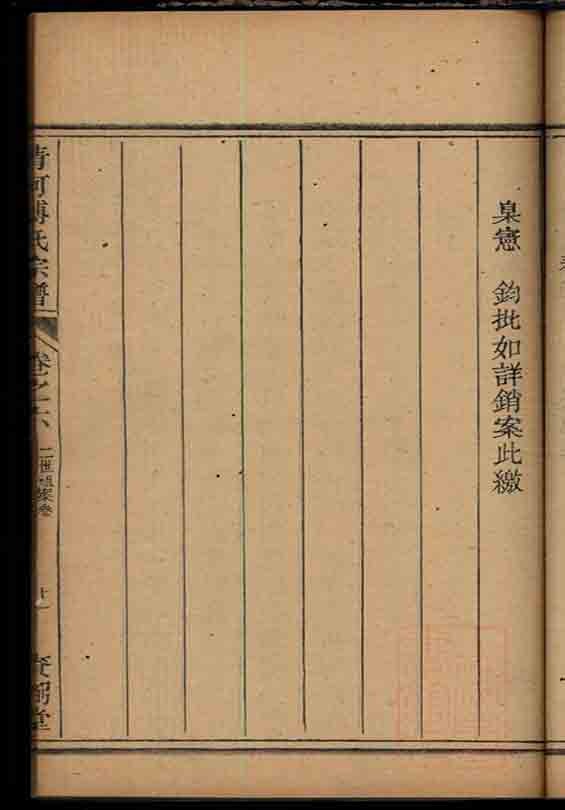 臬憲　鈞批如詳銷案此繳
清河傅氏宗譜
卷之六
二世祖案卷
十一